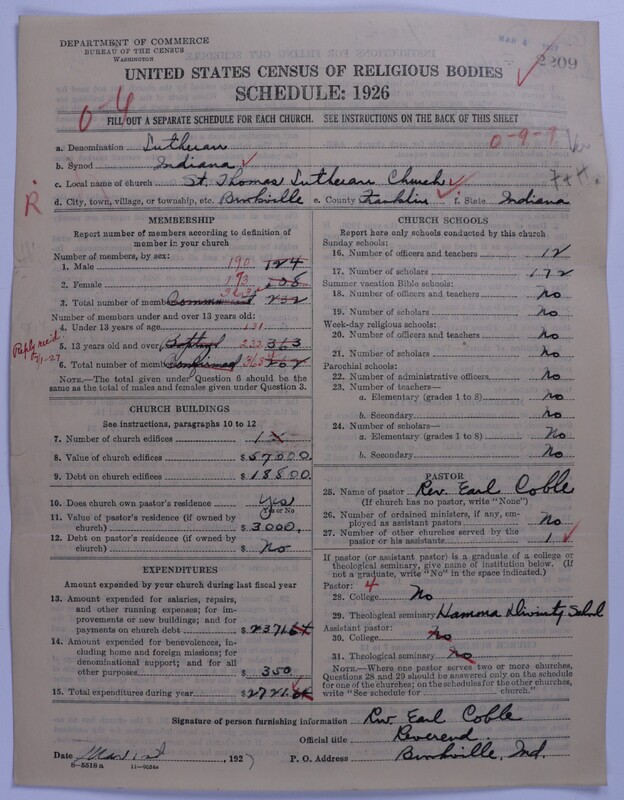 DEPARTMENT OF COMMERCE
BUREAU OF THE CENSUS
WASHINGTON
2209
UNITED STATES CENSUS OF RELIGIOUS BODIES
SCHEDULE: 1926
FILL OUT A SEPARATE SCHEDULE FOR EACH CHURCH. SEE INSTRUCTIONS ON THE BACK OF THIS SHEET
0-9-9
a. Denomination Lutheran
b. Synod Indiana
c. Local name of church St. Thomas Lutheran Church
d. City, town, village, or township, etc. Brookville e. County Franklin f. State Indiana
R
MEMBERSHIP
Report number of members according to definition of
member in your church
Number of members, by sex:
1. Male 190 124
2. Female 173
3. Total number of members 363 232
Number of members under and over 13 years old:
4. Under 13 years of age 131
5. 13 years old and over Baptized 232 363
6. Total number of members Confirmed 363
NOTE.—The total given under Question 6 should be the
same as the total of males and females given under Question 3.
Reply rec'd
CHURCH BUILDINGS
See instructions, paragraphs 10 to 12
7. Number of church edifices 1
8. Value of church edifices $ 57000.
9. Debt on church edifices $ 18500
10. Does church own pastor's residence? Yes
(Yes or No)
11. Value of pastor's residence (if owned by
church) $ 3000.
12. Debt on pastor's residence (if owned by
church) $ No
EXPENDITURES
Amount expended by your church during last fiscal year
13. Amount expended for salaries, repairs,
and other running expenses; for im-
provements or new buildings; and for
payments on church debt $ 2371.54
14. Amount expended for benevolences, in-
cluding home and foreign missions; for
denominational support; and for all
other purposes $ 350.
15. Total expenditures during year $ 2721.
CHURCH SCHOOLS
Report here only schools conducted by this church
Sunday schools:
16. Number of officers and teachers 12
17. Number of scholars 172
Summer vacation Bible schools:
18. Number of officers and teachers No
19. Number of scholars No
Week-day religious schools:
20. Number of officers and teachers No
21. Number of scholars No
Parochial schools:
22. Number of administrative officers No
23. Number of teachers—
a. Elementary (grades 1 to 8) No
b. Secondary No
24. Number of scholars—
a. Elementary (grades 1 to 8) No
b. Secondary No
PASTOR
25. Name of pastor Rev. Earl Coble
(If church has no pastor, write "None")
26. Number of ordained ministers, if any, em-
ployed as assistant pastors No
27. Number of other churches served by the
pastor or his assistants 1
If pastor (or assistant pastor) is a graduate of a college or
theological seminary, give name of institution below. (If
not a graduate, write "No" in the space indicated.)
Pastor: 4
28. College No
29. Theological seminary Hamma Divinity School
Assistant pastor:
30. College No
31. Theological seminary No
NOTE.—Where one pastor serves two or more churches,
Questions 28 and 29 should be answered only on the schedule
for one of the churches; on the schedules for the other churches,
write "See schedule for ______ church."
Signature of person furnishing information Rev Earl Coble
Official title Reverend.
Date March 1st, 1927 P. O. Address Brookville, Ind.
8-5518a 11-9054a